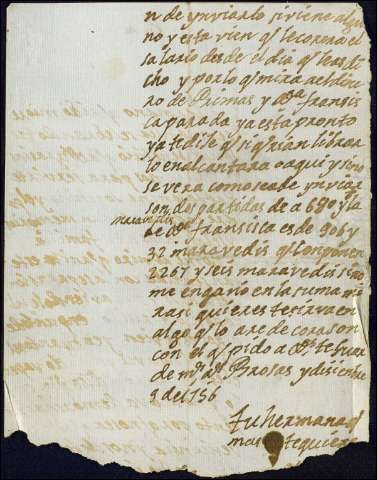 n de ynviarlo si viene algu
no y esta vien q le corera el
salario desde el dia q le as di
cho y por lo q mira al dine
ro de Dimas y Dª fransis
ca parada ya esta pronto
ya te dije q si q̃rian librar
lo en alcantara o aqui y sino
se vera como se a de ynviar
son dos partidas de a 680 y la
maravedis
de Dª fransisca es de 906 y
32 maravedis q conponen
2267 y seis maravedis sino
me engaño en la suma mi
ra si quieres te sirva en
algo q lo are de corason
con el q pido a Ds te guar
de ms as Brosas y disienbre
9 de 1756
tu hermana q
mas te quiere